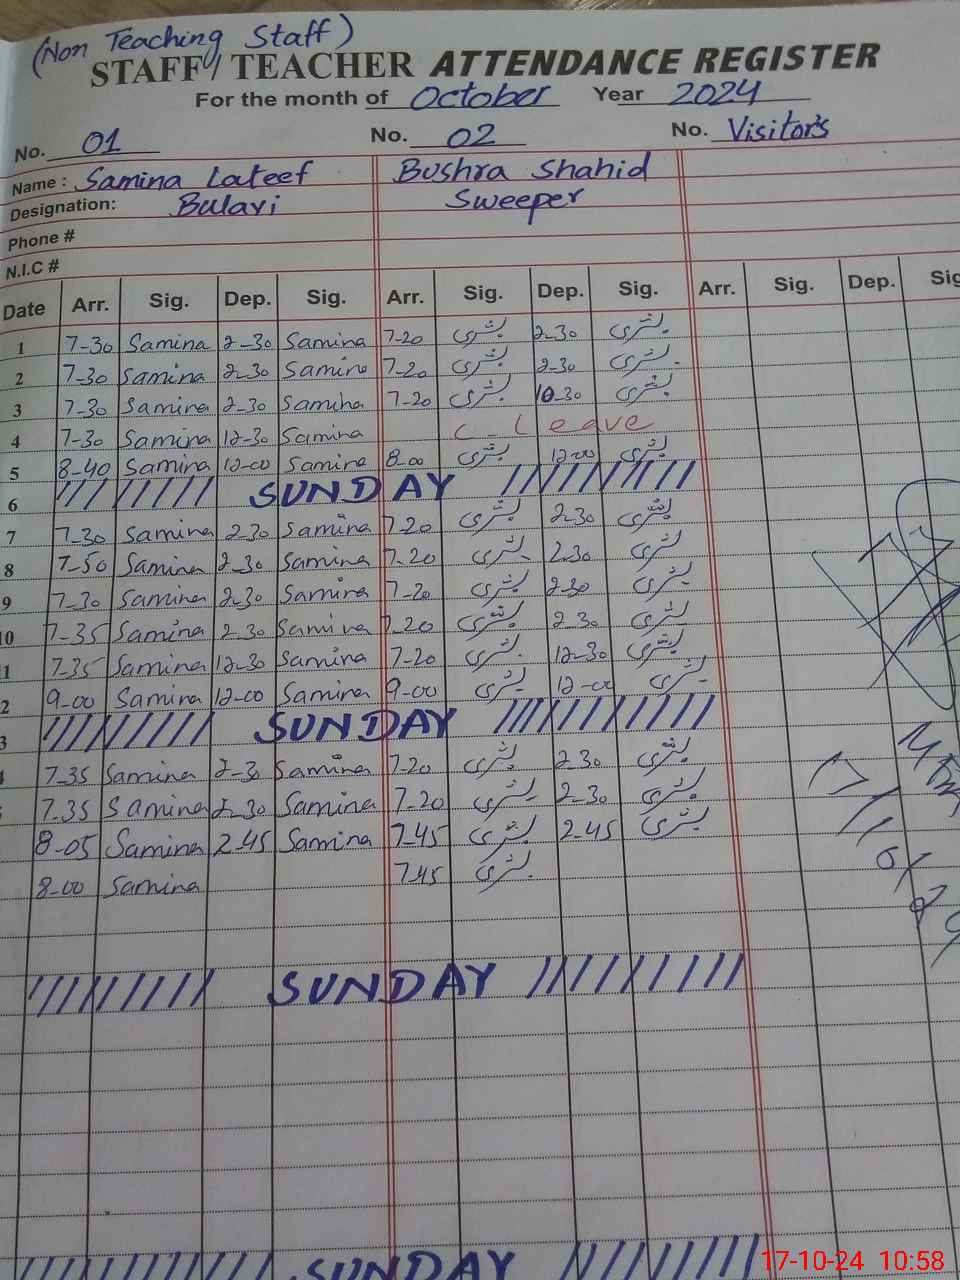 (Non Teaching Staff)
STAFF / TEACHER ATTENDANCE REGISTER
For the month of October Year 2024
No. 01 No. 02 No. Visitor's
Name : Samina Lateef Bushra Shahid
Designation: Bulavi Sweeper
Phone #
N.I.C #
Date Arr. Sig. Dep. Sig. Arr. Sig. Dep. Sig. Arr. Sig. Dep. Sig
1 7-30 Samina 2-30 Samina 7-20 بشری 2-30 بشری
2 7-30 Samina 2-30 Samina 7-20 بشری 2-30 بشری
3 7-30 Samina 2-30 Samina 7-20 بشری 10-30 بشری
4 7-30 Samina 12-30 Samina C-Leave
5 8-40 Samina 12-00 Samina 8-00 بشری 12-00 بشری
6 SUNDAY
7 7-30 Samina 2-30 Samina 7-20 بشری 2-30 بشری
8 7-50 Samina 2-30 Samina 7-20 بشری 2-30 بشری
9 7-30 Samina 2-30 Samina 7-20 بشری 2-30 بشری
10 7-35 Samina 2-30 Samina 7-20 بشری 2-30 بشری
1 7-35 Samina 12-30 Samina 7-20 بشری 12-30 بشری
2 9-00 Samina 12-00 Samina 9-00 بشری 12-00 بشری
3 SUNDAY
7-35 Samina 2-30 Samina 7-20 بشری 2-30 بشری
7-35 Samina 2-30 Samina 7-20 بشری 2-30 بشری
8-05 Samina 2-45 Samina 7-45 بشری 2-45 بشری
8-00 Samina 7-45 بشری
SUNDAY
SUNDAY
17-10-24 10:58